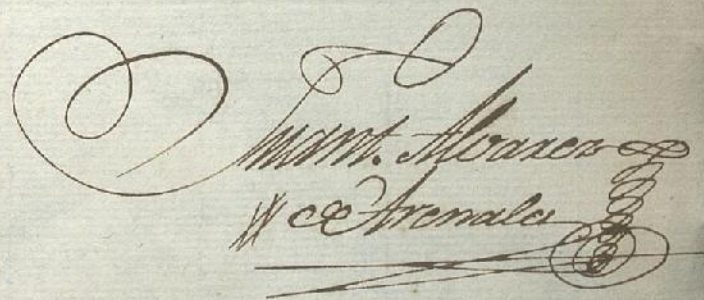 Juan Ant. Alvarez
de Arenales